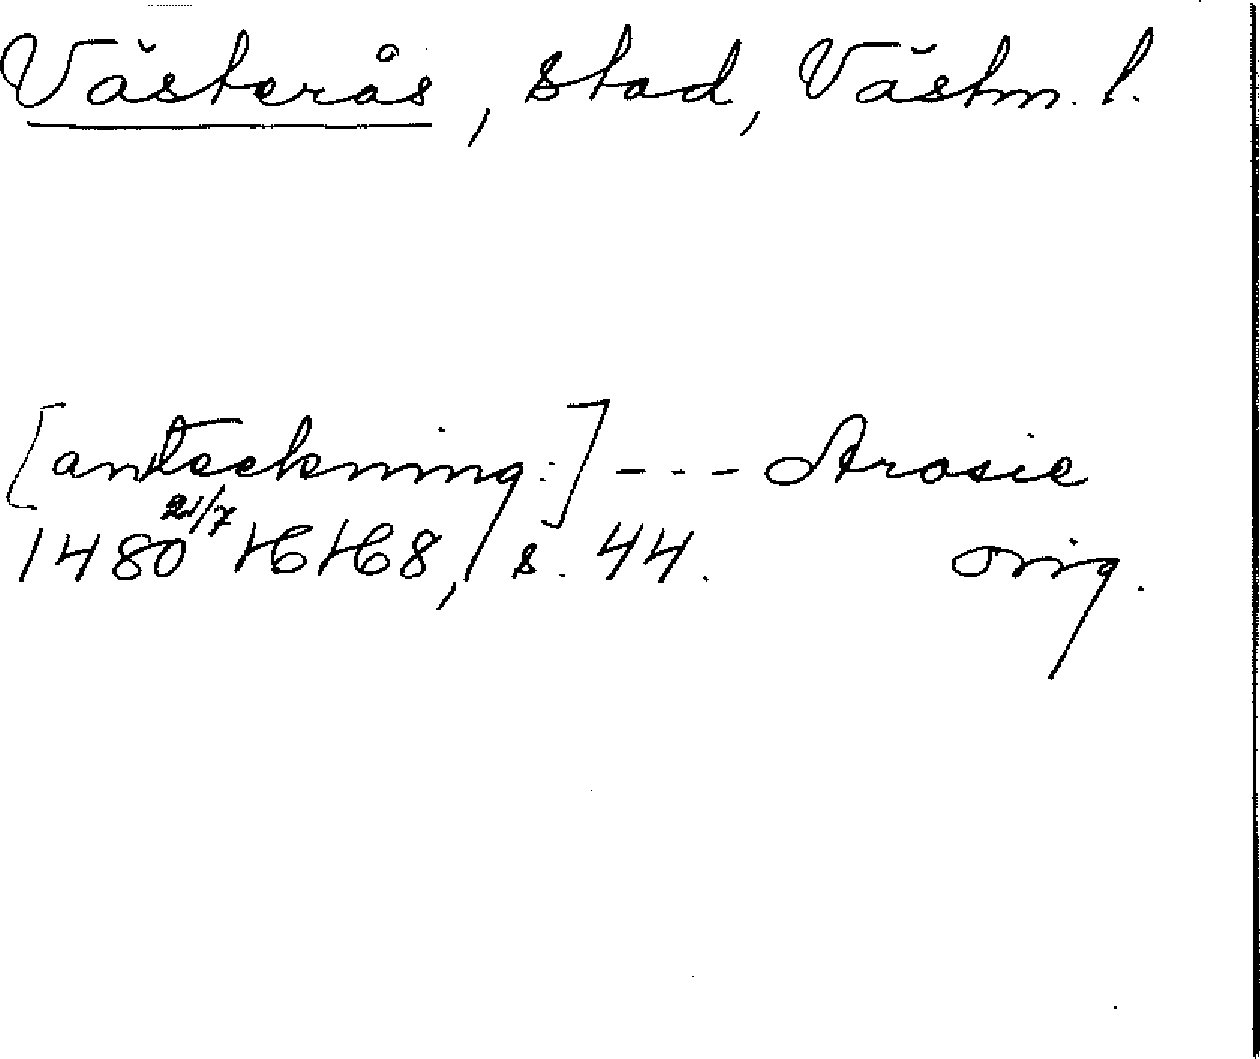 Västerås, stad, Västm. l.
[anteckning:] - - - Arosie
1480 21/7 s. 44. orig.